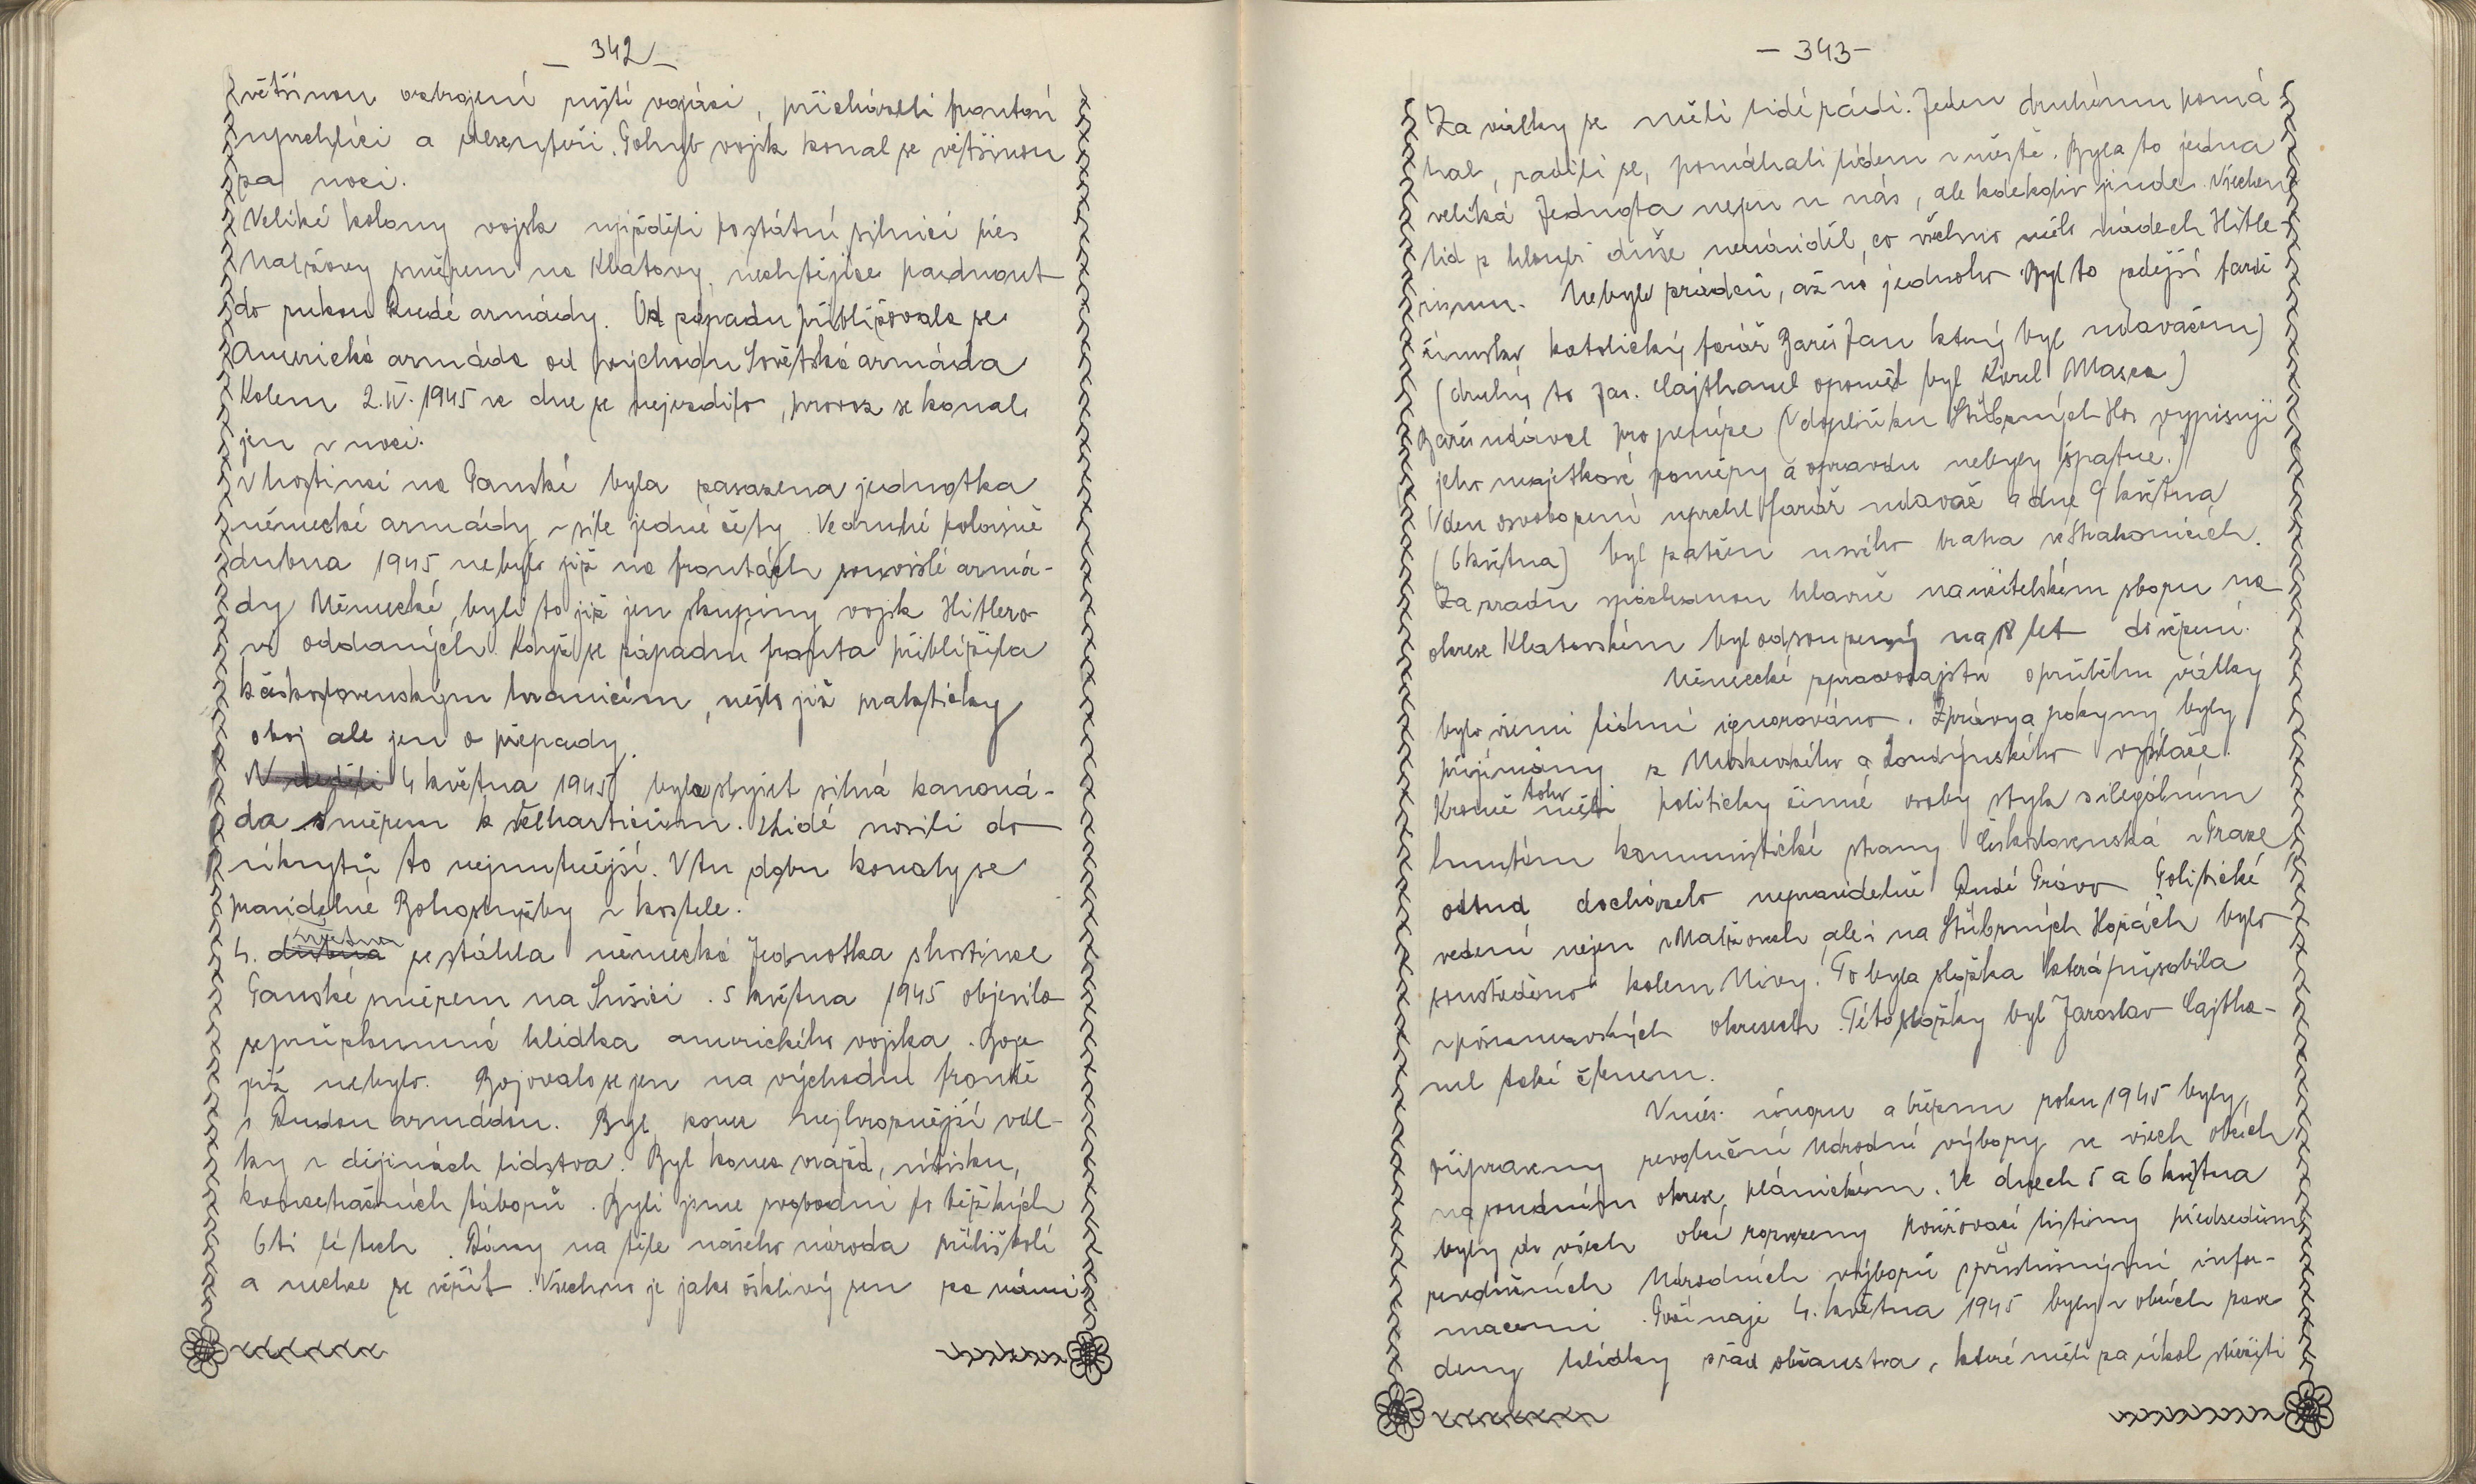 – 342 –
většinou ozbrojení pěští vojáci, přicházeli frontoví
uprchlíci a desertéři. Pohyb vojsk konal se většinou
za noci.
Veliké kolony vojsk ujížděli po státní silnici přes
Nalžovy směrem na Klatovy, nechtějíce padnout
do rukou Rudé armády. Od západu přibližovala se
Americká armáda od východu Sovětská armáda
Kolem 2.IV.1945 ve dne se nejezdilo, provoz se konal
jen v noci.
V hostinci na Panské byla zasazena jednotka
německé armády v síle jedné čety. Ve druhé polovině
dubna 1945 nebylo již na frontách souvislé armá-
dy Německé, byli to již jen skupiny vojsk Hitlero-
vi oddaných. Když se západní fronta přiblížila
k československým hranicím, nešlo již prakticky
o boj ale jen o přepady.
V neděli 4 května 1945 byla slyšet silná kanoná-
da směrem k Velharticům. Lidé nosili do
úkrytů to nejnutnější. V tu dobu konaly se
pravidelné Bohoslužby v kostele.
května
4. dubna se stáhla německá Jednotka z hostince
Panské směrem na Sušici. 5 května 1945 objevila
se průzkumná hlídka amerického vojska. Boje
již nebylo. Bojovalo se jen na východní frontě
s Rudou armádou. Byl konec nejhroznější vál-
ky v dějinách lidstva. Byl konec vražd, útisku,
koncetračních táborů. Byli jsme svobodni po těžkých
6ti létech. Rány na těle našeho národa příliš bolí
a nechce se věřit. Všechno je jako ošklivý sen za námi.
– 343 –
Za války se měli lidé rádi. Jeden druhému pomá
hal, radili se, pomáhali lidem v městě. Byla to jedna
veliká Jednota nejen u nás, ale kdekoliv jinde. Všechen
lid z hloubi duše nenáviděl, co všechno mělo nádech Hitle-
rismu. Nebylo zrádců, až na jednoho. Byl to zdejší farář
římsko katolický farář Bareš Jan který byl udavačem
(druhý to Jar. Cajthaml opomněl byl Karel Masca)
Bareš udával pro peníze (V doplňku Stříbrných Hor vypisuji
jeho majetkové poměry a opravdu nebyly špatné.)
V den osvobození uprchl farář udavač a dne 9 května
(6 května) byl zatčen u svého bratra ve Strakonicích.
Za zradu spáchanou hlavně na učitelském sboru na
okrese Klatovském byl odsouzený na 18 let do vězení.
Německé zpravodajství o průběhu války
bylo všemi lidmi ignorováno. Zprávy a pokyny byly
přijímány z Moskevského a Londýnského vysílače.
Kromě toho měli politicky činné osoby styk s ilegálním
hnutím komunistické strany Československa v Praze
odtud docházelo nepravidelně Rudé Právo. Politické
vedení nejen v Nalžovech ale i na Stříbrných Horách bylo
soustředěno kolem Nivy. To byla složka která působila
v pošumavských okresech. Této složky byl Jaroslav Cajtha-
ml také členem.
V měs. únoru a březnu roku 1945 byly
připraveny revoluční Národní výbory ve všech obcích
na soudním okrese, plánickém. Ve dnech 5 a 6 května
byly do všech obcí rozvezeny pověřovací listiny předsedům
revolučních Národních výborů s příslušnými infor-
macemi. Počínaje 4. května 1945 byly v obcích zave
deny hlídky z řad občanstva, které měli za úkol střežiti